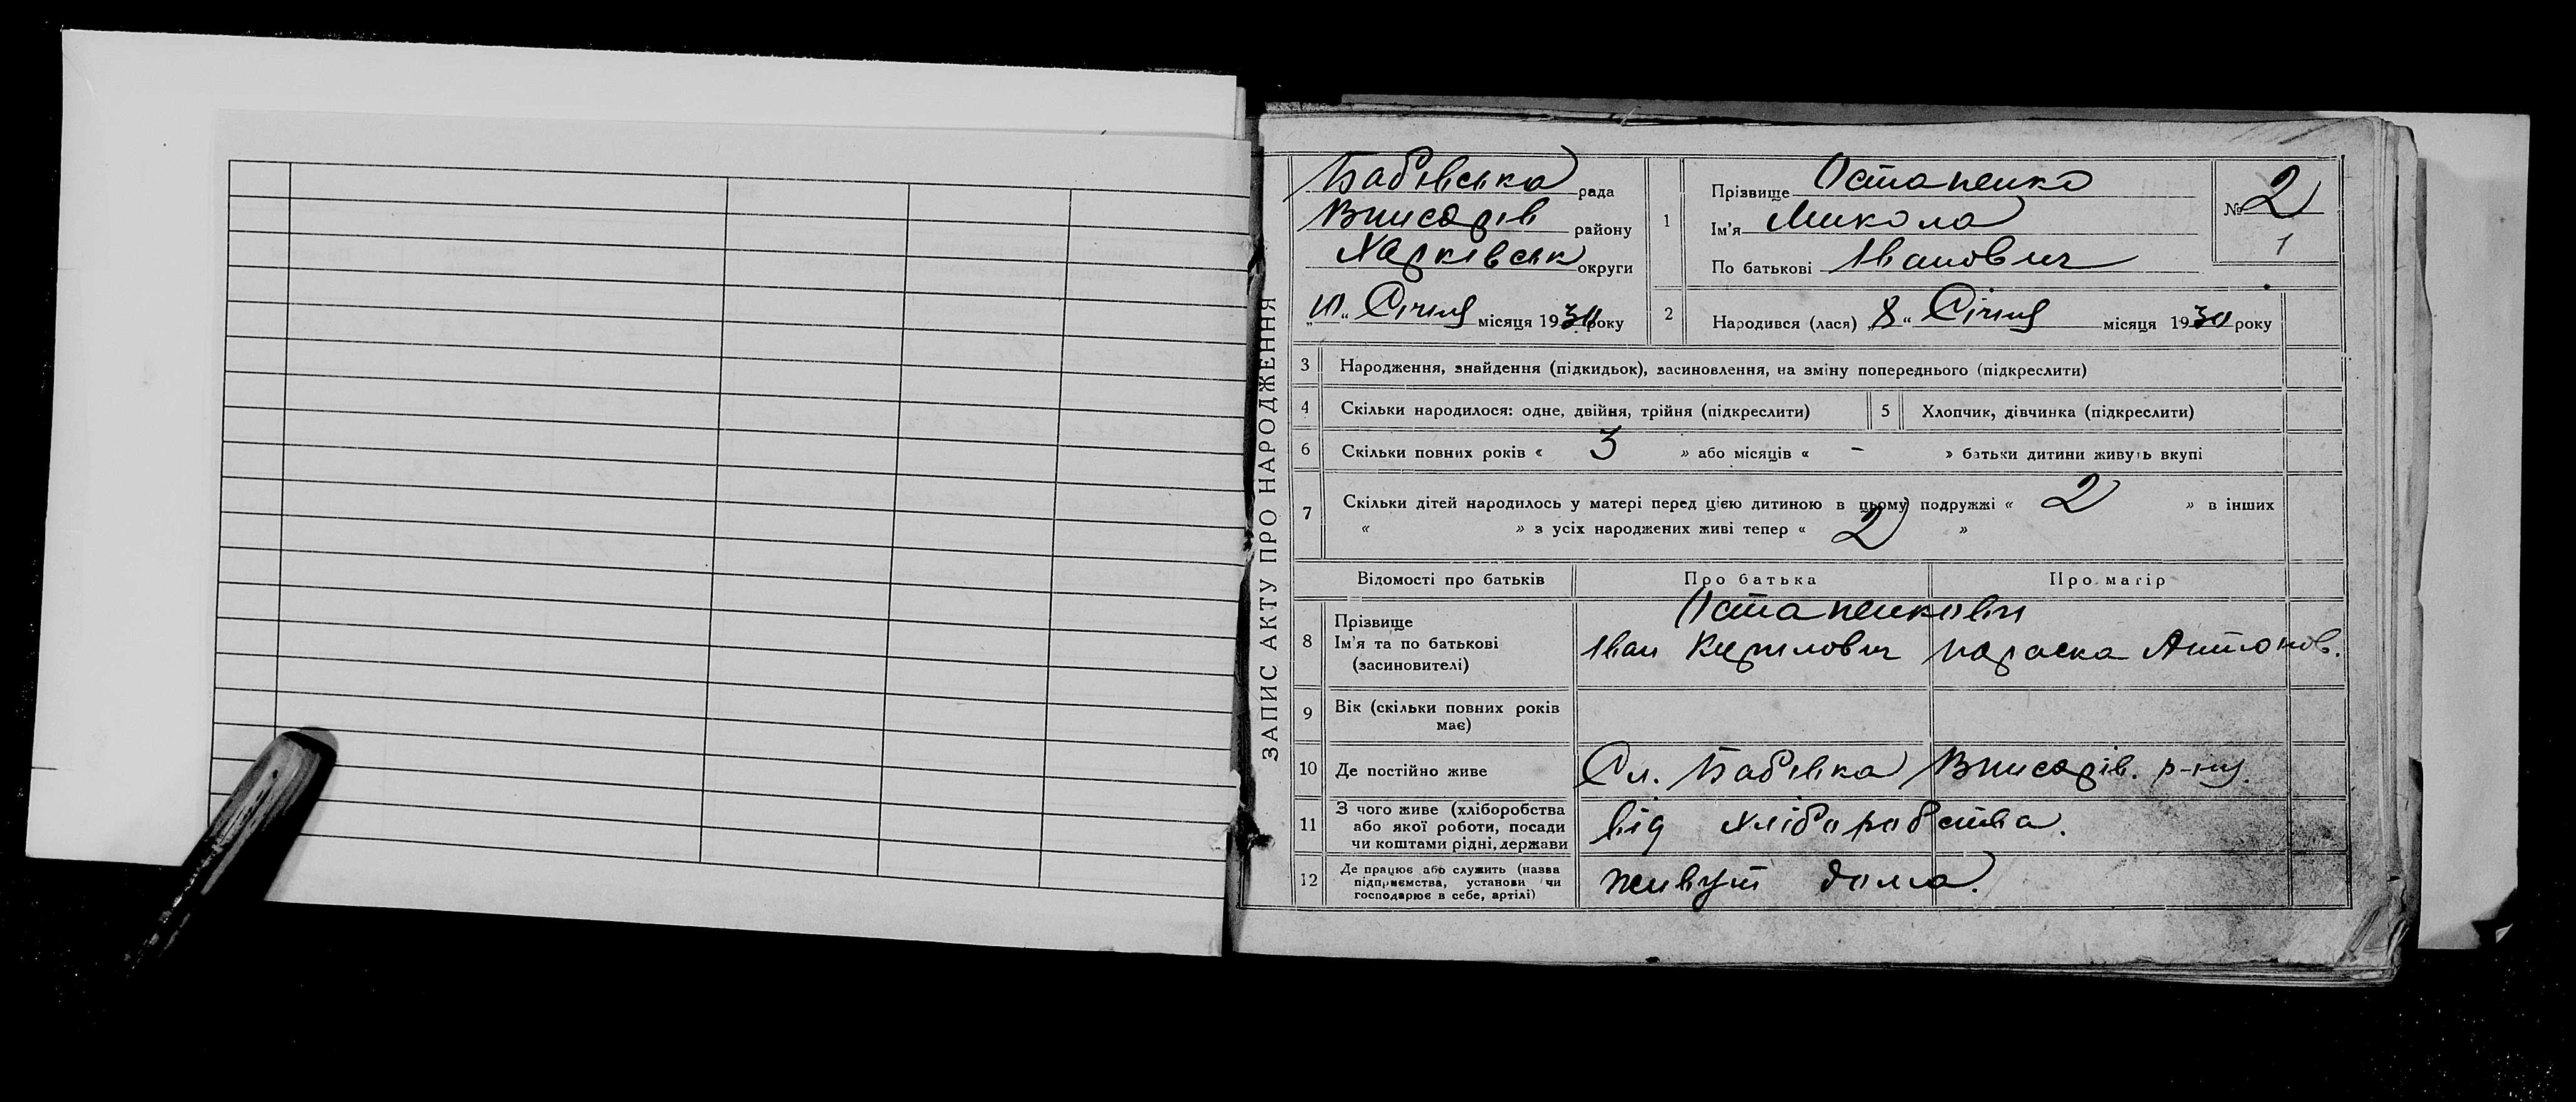 ЗАПИС АКТУ ПРО НАРОДЖЕННЯ
Бабʼївська рада
району
Харківськ округи
„10“ Січня місяця 1930 року
1
Прізвище Остапенко
Ім'я Микола
По батькові Іванович
№ 2
1
2 Народився (лася) „8“ Січня місяця 1930 року
3 Народження, знайдення (підкидьок), засиновлення, на зміну попереднього (підкреслити)
4 Скільки народилося: одне, двійня, трійня (підкреслити) 5 Хлопчик, дівчинка (підкреслити)
6 Скільки повних років « 3 » або місяців « - » батьки дитини живуть вкупі
7 Скільки дітей народилось у матері перед цією дитиною в цьому подружжі « 2 » в інших
« » з усіх народжених живі тепер « 2 »
Відомості про батьків Про батька Про матір
8 Прізвище Остапенкови
Ім'я та по батькові Іван Кирилович Параска Антонов.
(засиновителі)
9 Вік (скільки повних років
має)
10 Де постійно живе Сл. Бабʼївка р-ну.
11 З чого живе (хліборобства
або якої роботи, посади
чи коштами рідні, держави
від хліборобства.
12 Де працює або служить (назва
підприємства, установи чи
господарює в себе, артілі)
живут дома.